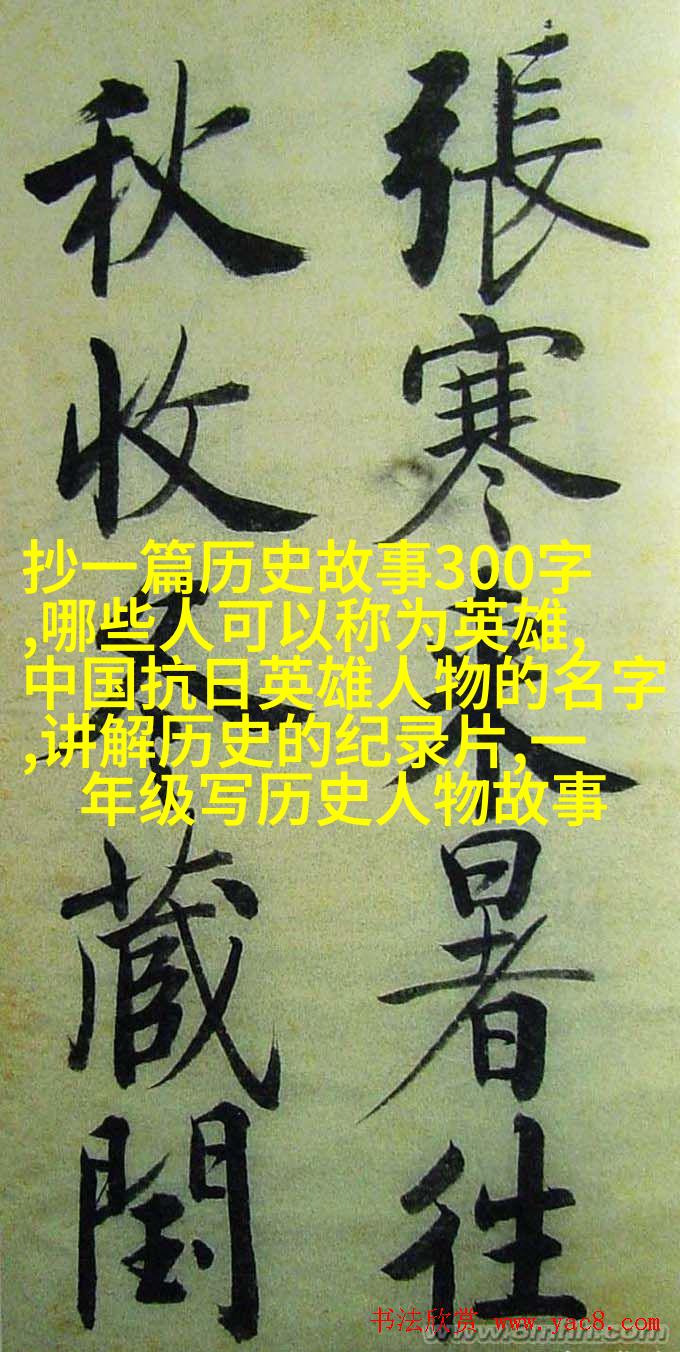 張寒來暑往
秋收冬藏閏
抄一篇历史故事300字
,哪些人可以称为英雄,
中国抗日英雄人物的名字
,讲解历史的纪录片,一
年级写历史人物故事
书法欣赏 www.yac8.com